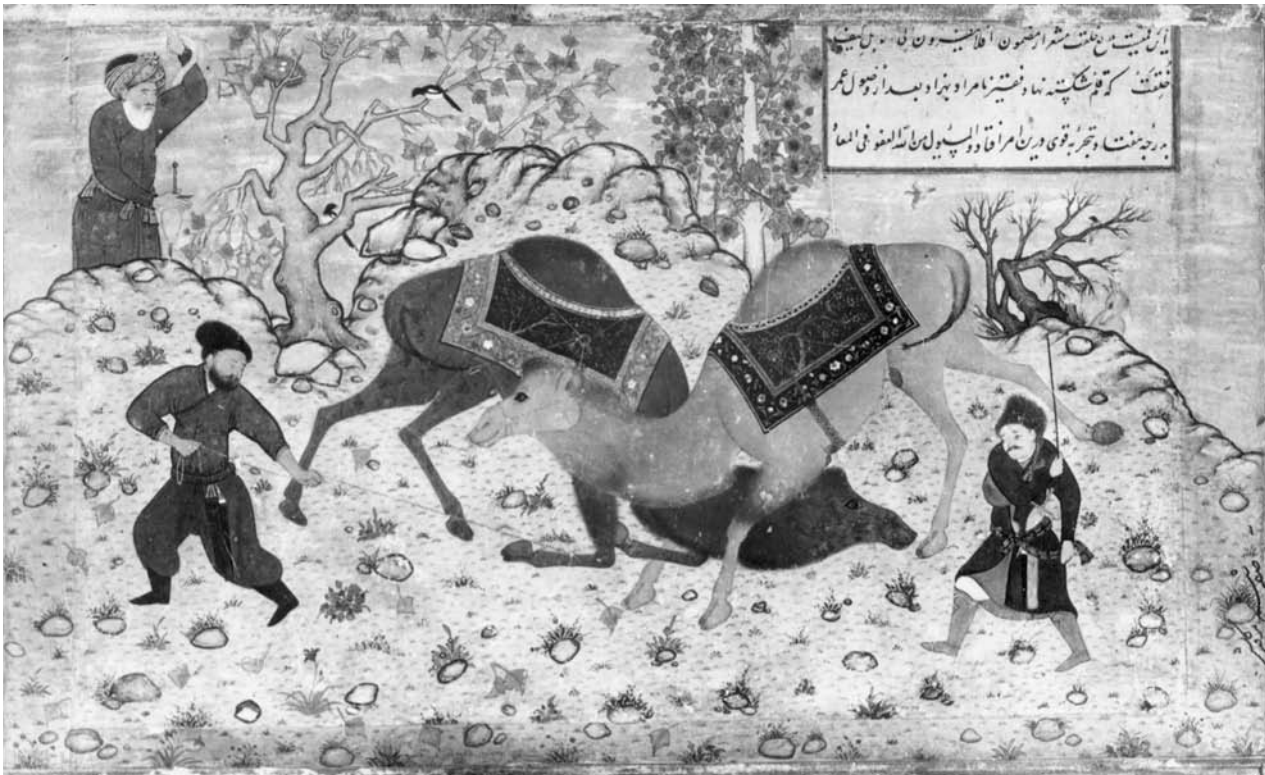 خلقت مشعر از مضمون افلا ینظرون الی کیف
خلقت که قلم شکسته نهاد فقیر نامراد بهزاد بعد از وصول عمر
بدرجه هفتاد و تجربه قوی درین امر افتاد و المسئول من الله العفو فی المعاد